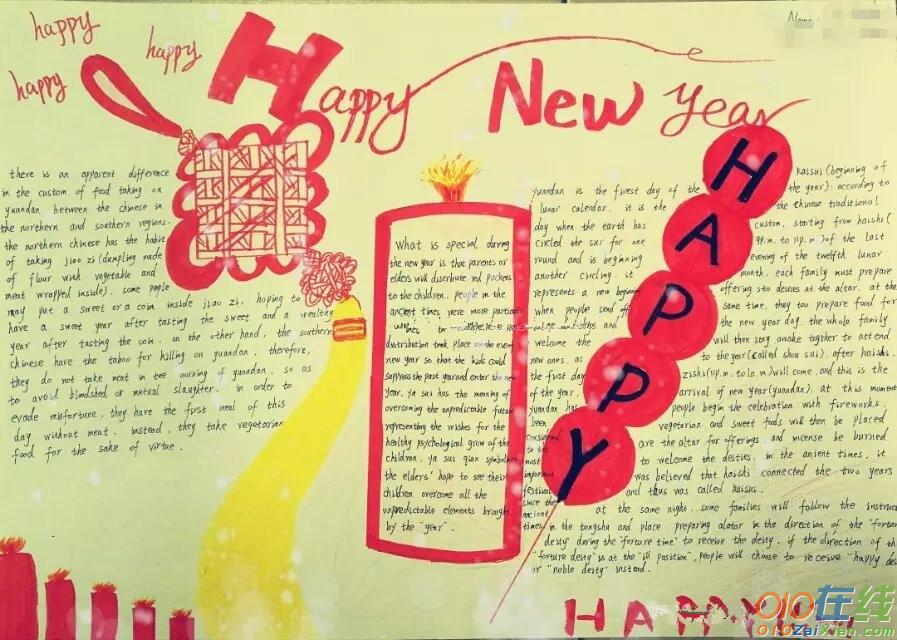 happy
happy
happy
Happy New Year
Name:
there is an apparent difference
in the custom of food taking on
yuandan, between the chinese in
the northern and southern regions.
the northern chinese has the habit
of taking jiao zi (dumpling made
of flour with vegetable and
meat wrapped inside). some people
may put a sweet or a coin inside jiao zi. hoping to
have a sweet year after tasting the sweet and a wealthy
year after tasting the coin. on the other hand, the southern
chinese have the taboo for killing on yuandan. therefore,
they do not take meat in tee morning of yuandan, so as
to avoid bloodshed or mutual slaughter. in order to
evade misfortune, they have the first meal of this
day without meat. instead, they take vegetarian
food for the sake of virtue.
What is special during
the new year is that parents or
elders will distribute red packets
to the children. people in the
ancient times were more particular
distribution took place on the even
new year so that the kids could
suppress the past year and enter the new
year. ya sui has the meaning of
overcoming the unpredictable future
representing the wishes for the
healthy psychological grow of the
children. ya sui qian symbolises
the elders' hope to see their
children overcome all the
unpredictable elements brought
by the "year".
yuandan is the firest day of the
lunar calendar. it is the
day when the earth has
circled the sur for one
round and is beginning
another circling. it
represents a new beginning
when people send off
the old days and
welcome the
new ones. as
the first day
of the year,
yuandan has
been
considered
to the
most
important
festival
since the
ancient
times
HAPPY
Kaisui (beginning of
the year): according to
the chinese traditional
custom, starting from haishi (
9p.m. to 11p.m.) of the last
evening of the twelfth lunar
month, each family must prepare
offering sto deities at the altar. at the
same time, they too prepare food for
the new year day. the whole family
will then stay awake togther to attend
to the year (called shou sui). after haishi.
zishi (11p.m. to 1a.m.) will come, and this is the
arrival of new year (yuandan). at this moment
people begin the celebration with fireworks.
vegetarian and sweet foods will then be placed
are the altar for offerings and incense be burned
to welcome the deities. in the ancient times, it
was believed that haishi connected the two years
and thus was called kaisui.
at the same night, some families will follow the instruc
in the tongshu and place preparing alator in the direction of the "fortune
deity during the "forture time" to receive the deity. if the direction of the
"forture deity is at the "ill position", people will choose to receive "happy dei
or "noble deity" instead.
HAPPY
010在线
010ZaiXian.com